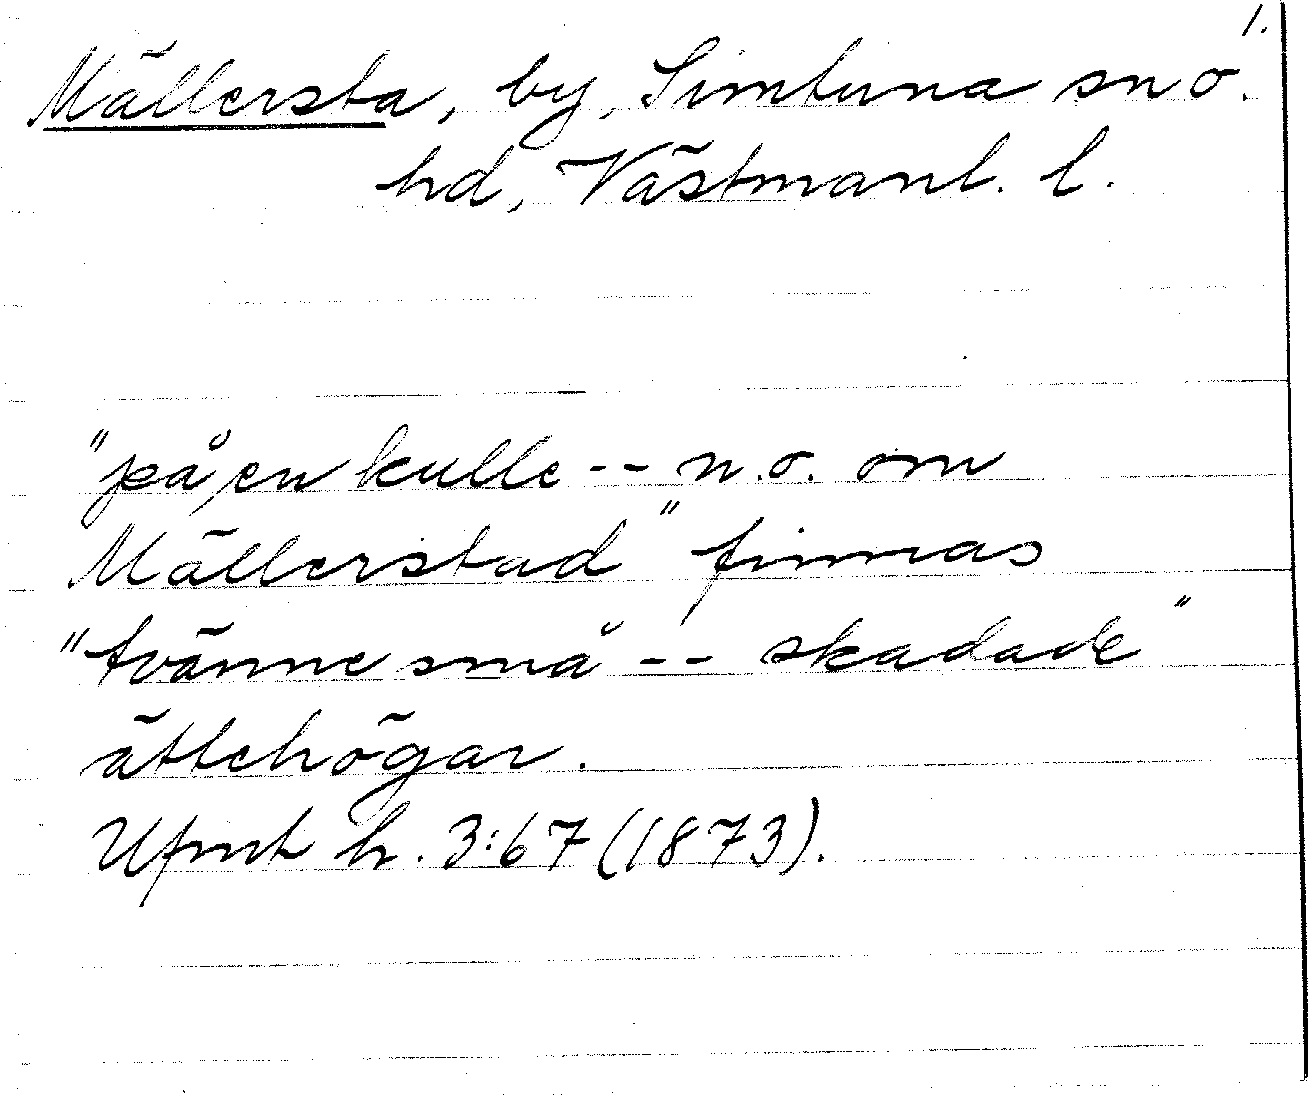 1.
Mällersta, by, Simtuna sn o.
hd, Västmanl. l.
"på en kulle -- n.o. om
Mällerstad" finnas
"tvänne små -- skadade"
ättehögar.
Ufmt h. 3:67 (1873).